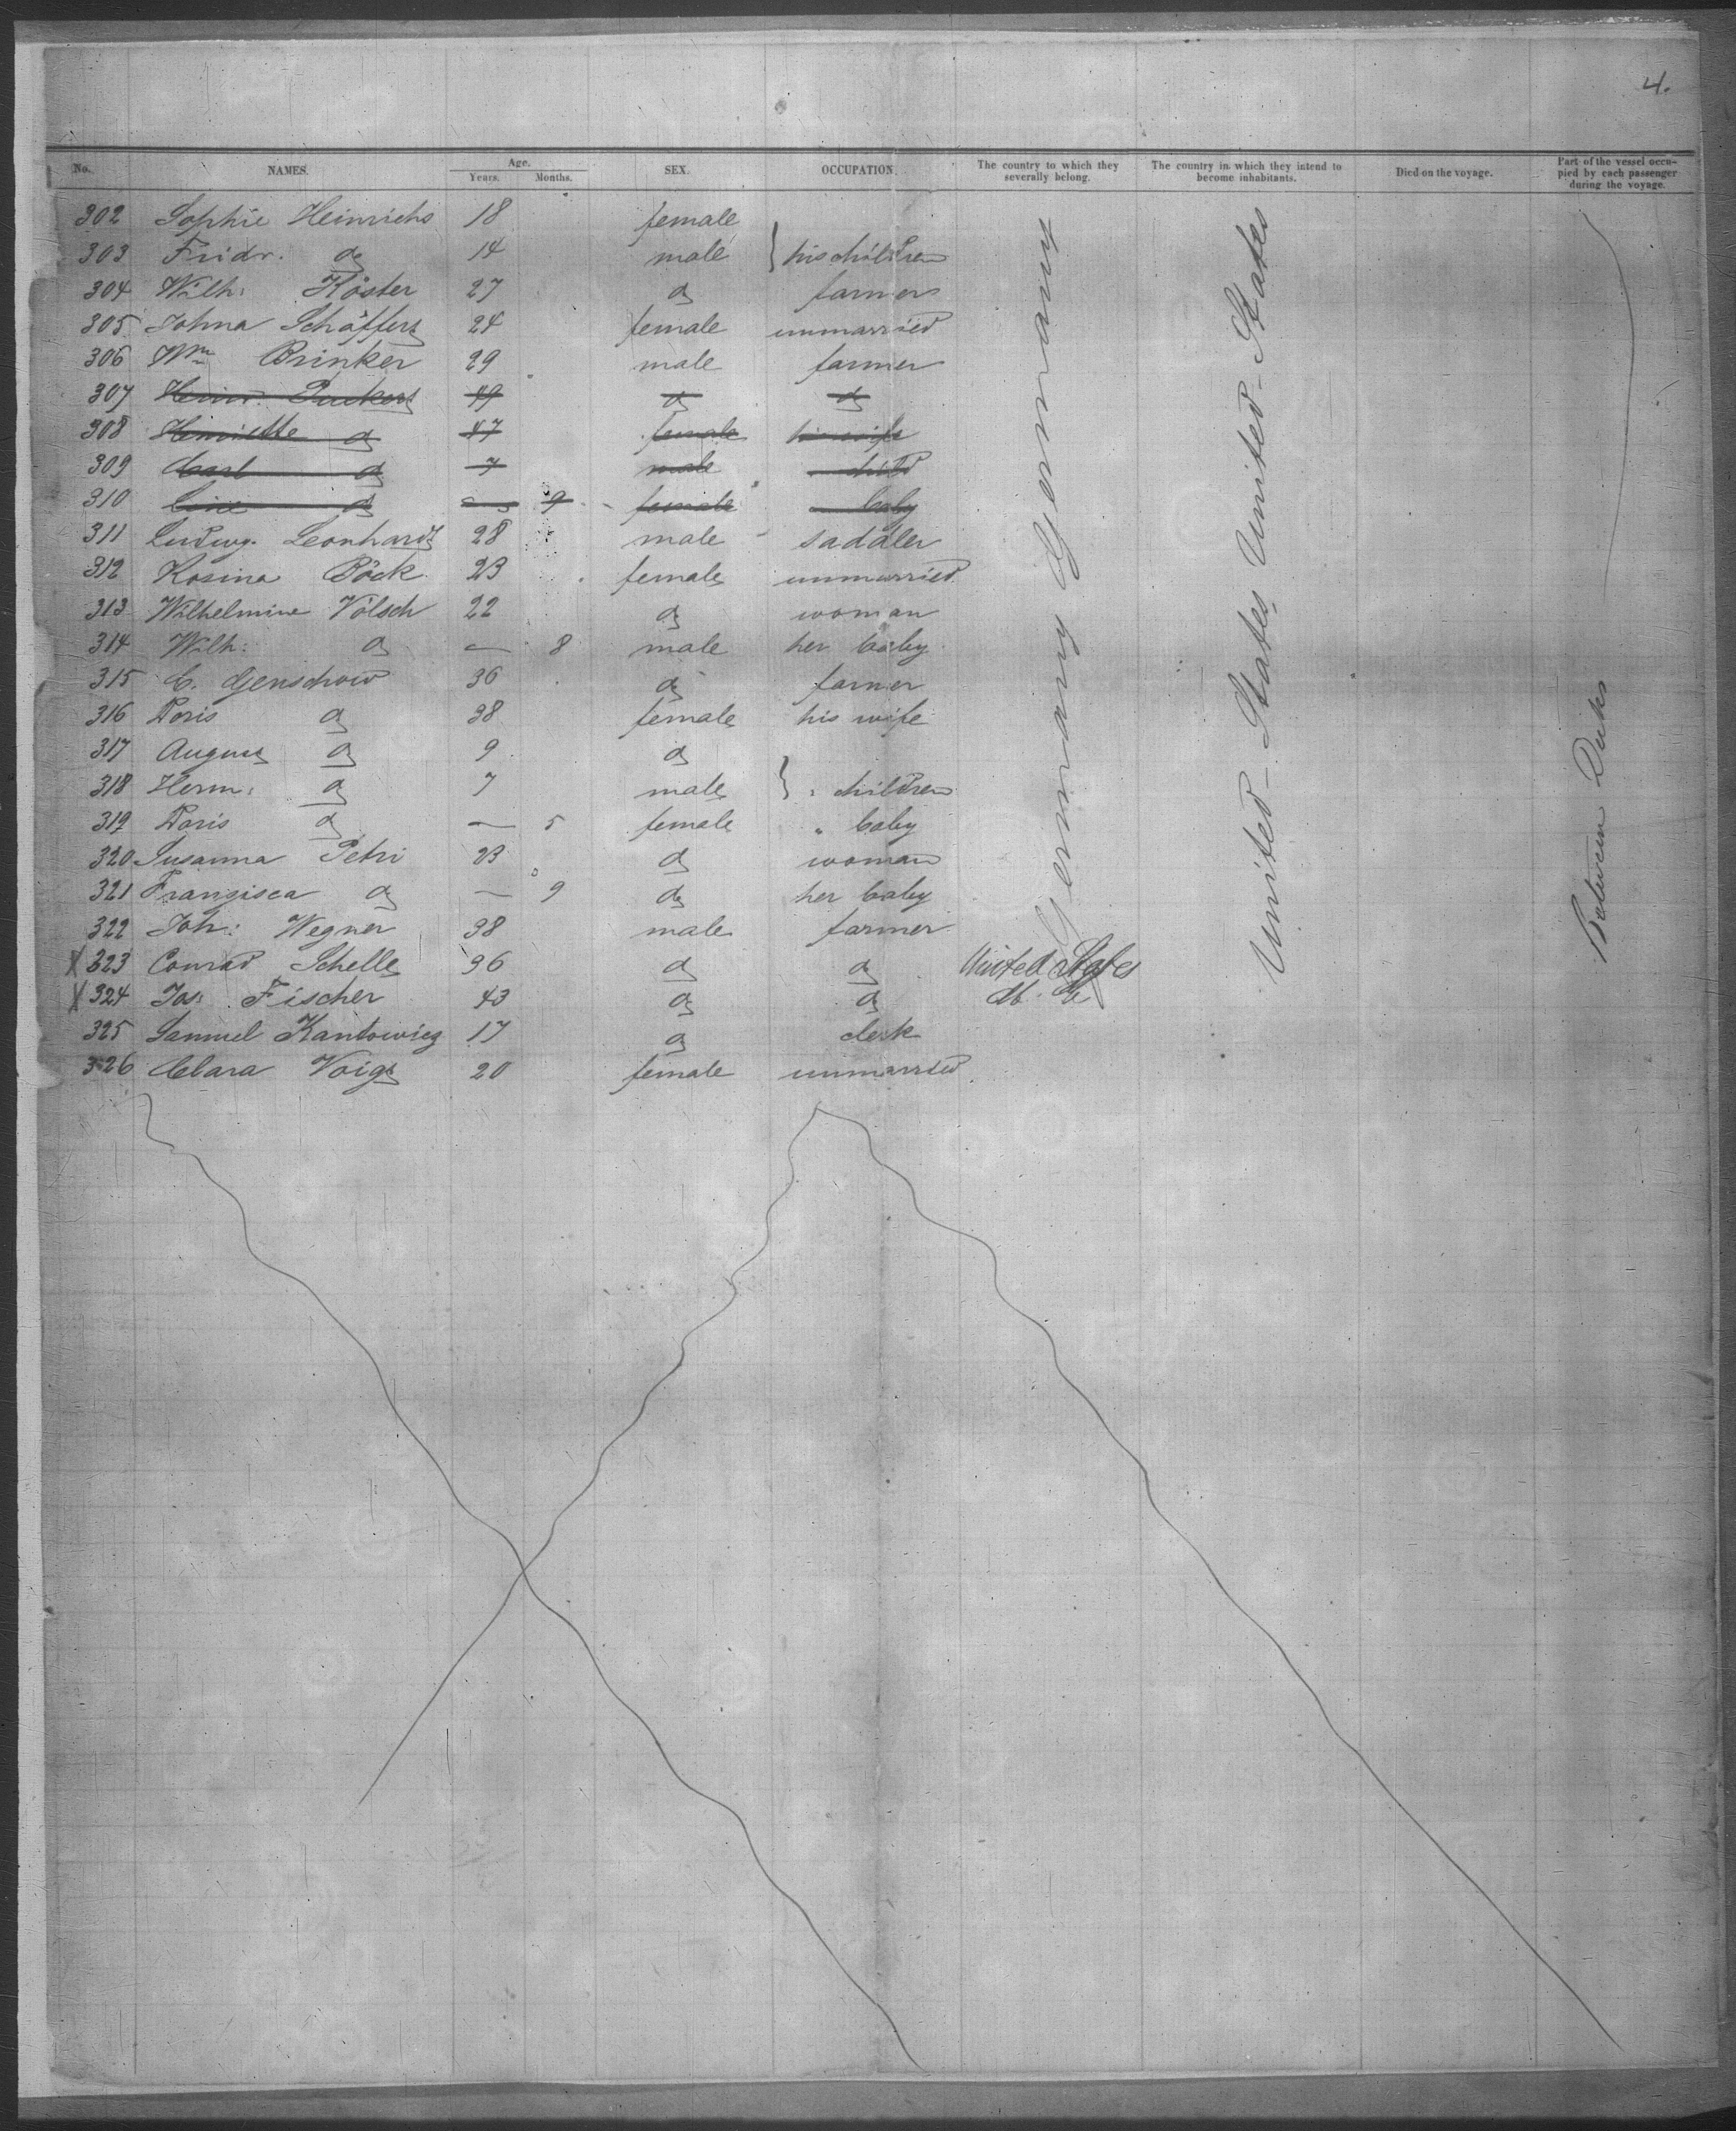 4.
No. NAMES. Age. Years. Months. SEX. OCCUPATION. The country to which they severally belong. The country in which they intend to become inhabitants. Died on the voyage. Part of the vessel occupied by each passenger during the voyage.
302 Sophie Heinrichs 18 female
303 Fridr. do 14 male } his children
304 Wilh: Köster 27 do farmer
305 Johna Schäffers 24 female unmarried
306 Wm Brinker 29 male farmer
307 Heinr. Puckert 49 do do
308 Henriette do 47 female his wife
309 Carl do 7 male child
310 Line do — 9 female baby
311 Ludwig Leonhardt 28 male saddler
312 Rosina Böck 23 female unmarried
313 Wilhelmine Völsch 22 do woman
314 Wilh: do — 8 male her baby
315 C. Genschow 36 do farmer
316 Doris do 38 female his wife
317 August do 9 do
318 Herm: do 7 male } " children
319 Doris do — 5 female " baby
320 Susanna Petri 23 do woman
321 Franzisca do — 9 do her baby
322 Joh: Wegner 38 male farmer
X 323 Conrad Schelle 36 do do United States
X 324 Jos: Fischer 43 do do do. do
325 Samuel Kantowicz 17 do clerk
326 Clara Voigt 20 female unmarried
Germany Germany
United-States United-States
Between Decks